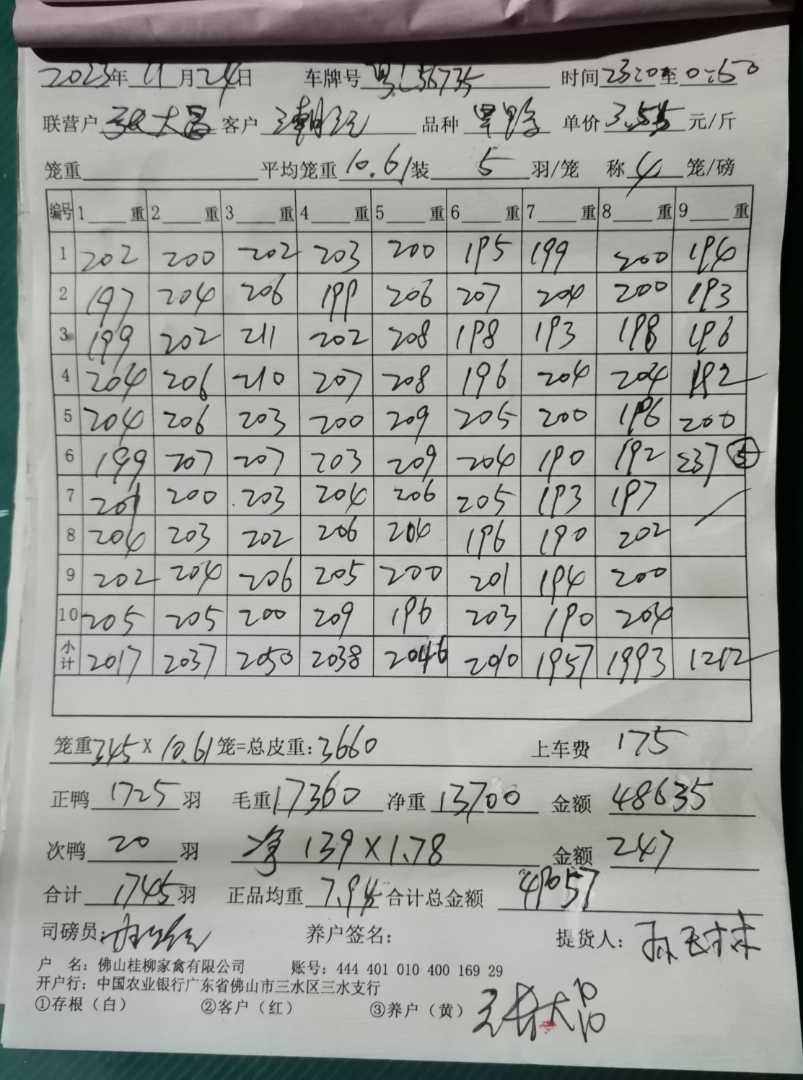 2023年 11月24日 车牌号 粤L56735 时间2320至0:50
联营户 张大昌 客户 品种 单价3.55元/斤
笼重 平均笼重10.61装 5 羽/笼 称 4 笼/磅
编号 1 重 2 重 3 重 4 重 5 重 6 重 7 重 8 重 9 重
1 202 200 202 203 200 195 199 200 194
2 197 204 206 199 206 207 204 200 193
3 199 202 211 202 208 198 193 198 196
4 204 206 210 207 208 196 204 204 192
5 204 206 203 200 209 205 200 196 200
6 199 207 207 203 209 204 190 192 237 ⑤
7 201 200 203 204 206 205 193 197
8 204 203 202 206 204 196 190 202
9 202 204 206 205 200 201 194 200
10 205 205 200 209 196 203 190 204
小计 2017 2037 2050 2038 2046 2010 1957 1993 1212
笼重345×10.61笼=总皮重:3660 上车费 175
正鸭 1725 羽 毛重17360 净重 13700 金额 48635
次鸭 20 羽 净 139×1.78 金额 247
合计 1745羽 正品均重 7.94 合计总金额 49057
司磅员: 养户签名: 提货人:
户 名:佛山桂柳家禽有限公司 账号:444 401 010 400 169 29
开户行:中国农业银行广东省佛山市三水区三水支行
①存根(白) ②客户(红) ③养户(黄)